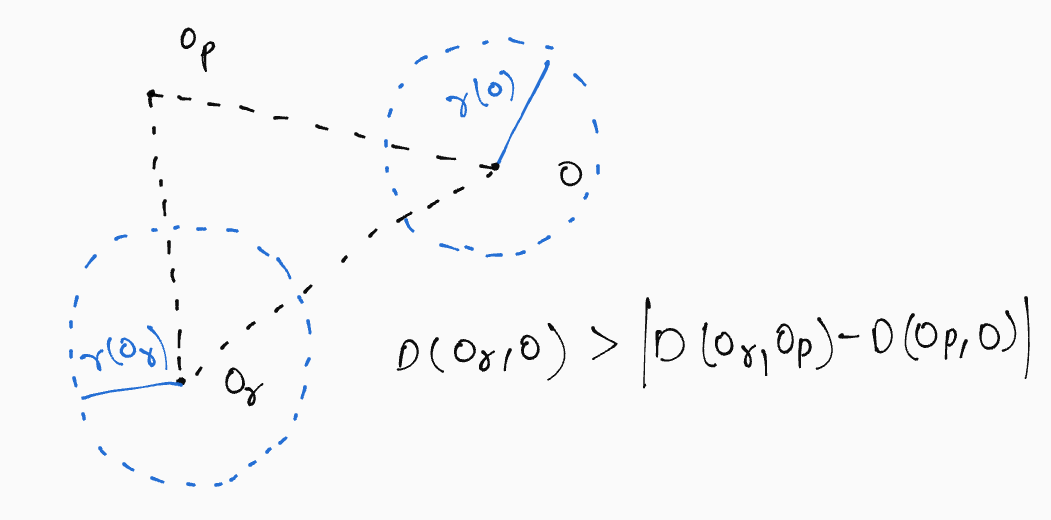 Op
r(O)
O
r(Or)
Or
D(Or,O) > |D(Or,Op)-D(Op,O)|